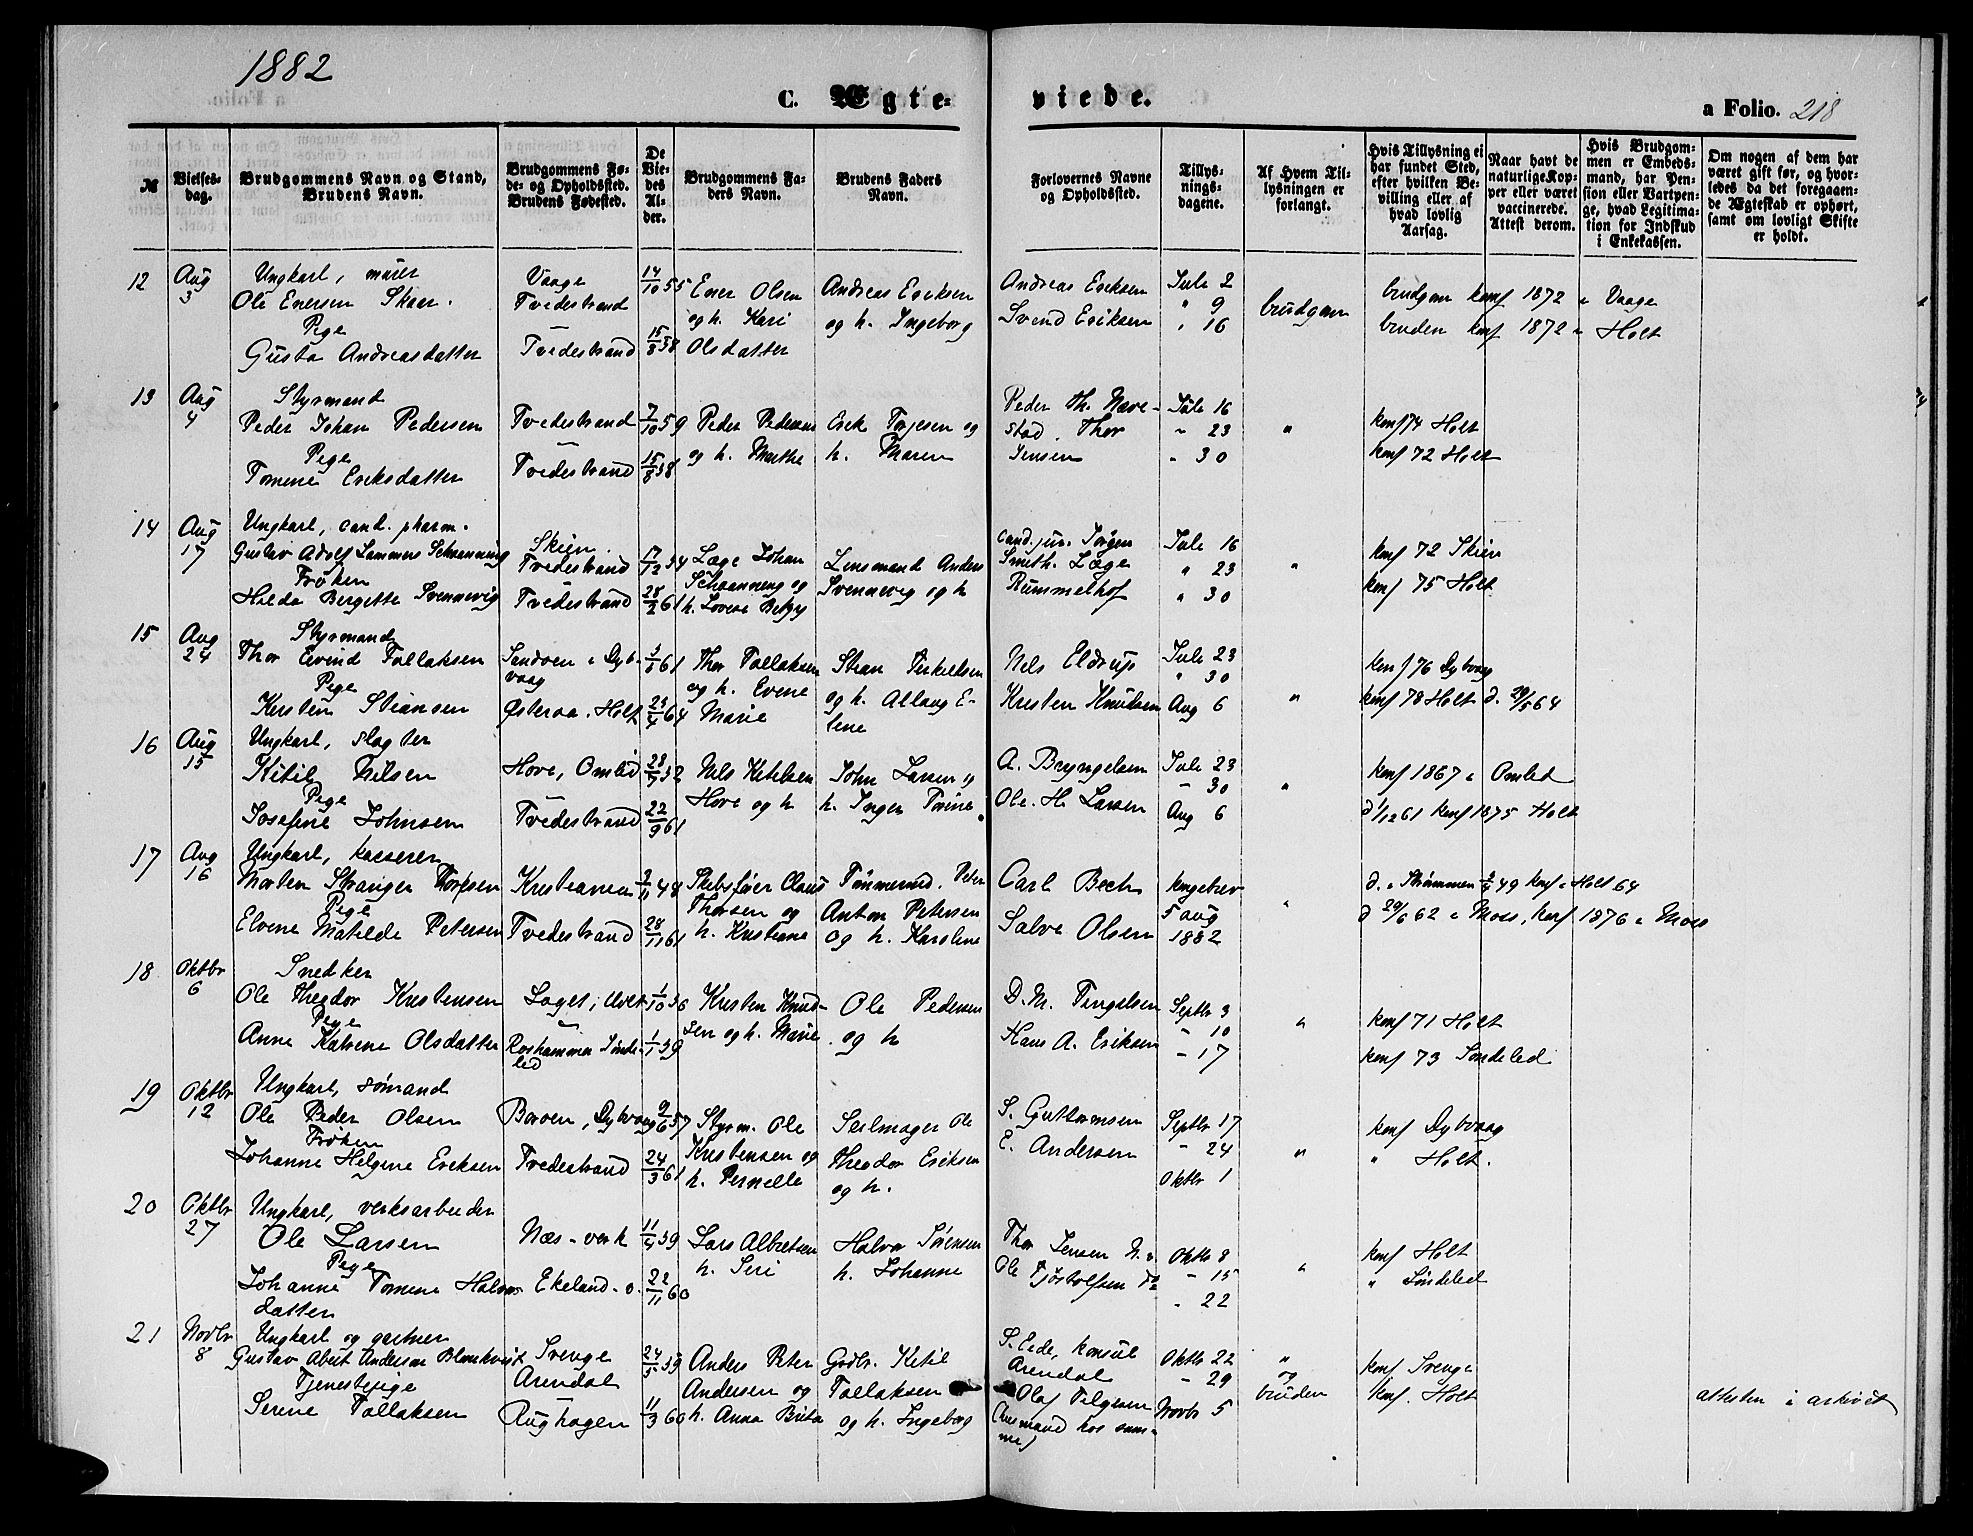 1882
C. Ægte-
viede.
a Folio. 218
№
Vielses-
dag.
Brudgommens Navn og Stand,
Brudens Navn.
Brudgommens Fø-
de- og Opholdssted.
Brudens Fødested.
De
Vie-
des
Al-
der.
Brudgommens Fa-
ders Navn.
Brudens Faders
Navn.
Forlovernes Navne
og Opholdssted.
Tillys-
nings-
dagene.
Af Hvem Til-
lysningen er
forlangt.
Hvis Tillysning ei
har fundet Sted,
efter hvilken Be-
villing eller af
hvad lovlig
Aarsag.
Naar havt de
naturlige Kop-
per eller været
vaccinerede.
Attest derom.
Hvis Brudgom-
men er Embeds-
mand, har Pen-
sion eller Vartpen-
ge, hvad Legitima-
tion for Indskud
i Enkekassen.
Om nogen af dem har
været gift før, og hvor-
ledes da det foregaaen-
de Ægteskab er ophørt,
samt om lovligt Skifte
er holdt.
12
Aug
3
Ungkarl, murer
Ole Enersen Skaar.
Pige
Gusta Andreasdatter
Vaage
Tvedestrand
Tvedestrand
14/10 55
15/8 58
Ener Olsen
og h. Kari
Olsdatter
Andreas Eriksen
og h. Ingeborg
Andreas Eriksen
Svend Eriksen
Jule 2
" 9
" 16
brudgom
brudgom konf 1872 i Vaage
bruden konf 1872 i Holt
13
Aug
4
Styrmand
Peder Johan Pedersen
Pige
Tomine Eriksdatter
Tvedestrand
Tvedestrand
7/10 59
15/8 58
Peder Pedersen
og h. Marthe
Erik Terjesen og
h. Maren
Peder Th. Nave-
stad. Thor
Jensen
Jule 16
" 23
" 30
"
konf 74 Holt
konf 72 Holt
14
Aug
17
Ungkarl, cand. pharm.
Gustav Adolf Lammers Schaanning
Frøken
Hilda Bergette Svennevig
Skien.
Tvedestrand
Tvedestrand
17/12 54
28/2 61
Læge Johan
Schaanning og
h. Lovise Betzy
Lensmand Anders
Svennevig og h
cand. jur. Jørgen
Smith. Læge
Rummelhof
Jule 16
" 23
" 30
"
konf 72 Skien
konf 75 Holt
15
Aug
24
Styrmand
Thor Eivind Tallaksen
Pige
Kirsten Stiansen
Sandøen i Dyb-
vaag
Østeraa. Holt
61
23/4 64
Thor Tallaksen
og h. Evine
Marie
Stian Terkelsen
og h. Allaug E-
lene
Nels Eldrup
Kristen Knudsen
Jule 23
" 30
Aug 6
"
konf 76 Dybvaag
konf 78 Holt d. 29/5 64
16
Aug
15
Ungkarl, slagter
Kitil Nilsen
Pige
Josefine Johnsen
Hove, Omlid
Tvedestrand
28/9 52
22/9 61
Nels Ketelsen
Hove og h
John Larsen og
h. Inger Tomine
A. Bryngelsen
Ole. H. Larsen
Jule 23
" 30
Aug 6
"
konf 1867 i Omlid
d 1/12 61 konf 1875 Holt
17
Aug
16
Ungkarl, kasserer
Morten Stranger Thorsen
Pige
Elvine Matilde Petersen
Kristiania
Tvedestrand
48
28/11 61
Skibsfører Claus
Thorsen og
h. Kristiane
Tømmermd. Peter
Anton Petersen
og h. Karoline
Carl Bech
Salve Olsen
kongebrev
5 aug
1882
"
d. i Strømmen 49 konf i Holt 64
d 29/6 62 i Moss, konf 1876 i Moss
18
Oktbr
6
Snedker
Ole Theodor Kristensen
Pige
Anne Katrine Olsdatter
Laget, Holt
Roshammer Sønde-
led
1/10 56
1/1 59
Kristen Knud-
sen og h. Marie
Ole Pedersen
og h
D. M. Tengelsen
Hans A. Eriksen
Septbr 3
" 10
" 17
"
konf 71 Holt
konf 73 Søndeled
19
Oktbr
12
Ungkarl, sømand
Ole Peder Olsen
Frøken
Johanne Helgine Eriksen
Borøen, Dybvaag
Tvedestrand
9/6 57
24/3 61
Styrm. Ole
Kristensen og
h. Pernelle
Seilmager Ole
Theodor Eriksen
og h.
S. Guttormsen
E. Andersen
Septbr 17
" 24
Oktbr 1
"
konf Dybvaag
" Holt.
20
Oktbr
27
Ungkarl, verksarbeider
Ole Larsen
Pige
Johanne Tomine Halvors
datter
Næs-verk
Ekeland. o.
11/4 59
22/11 60
Lars Albretsen
h. Siri
Halvor Sørensen
h. Johanne
Thor Jensen N. v.
Ole Tjøstolfsen do
Oktbr 8
" 15
" 22
"
konf Holt
" Søndeled
21
Novbr
8
Ungkarl og gartner
Gustav Abert Anderson Blomkvist
Tjenestepige
Serine Tallaksen
Sverige
Arendal
Aughagen
24/5 59
11/3 60
Anders Peter
Andersen og
h. Anna Brita
Grdbr. Ketil
Tallaksen
og h. Ingeborg
S. Eide, konsul
Arendal
Olaf Telgesen
(husmand hos sam-
me)
Oktbr 22
" 29
Novbr 5
"
og
bruden
konf Sverige
konf. Holt
attesten i arkivet